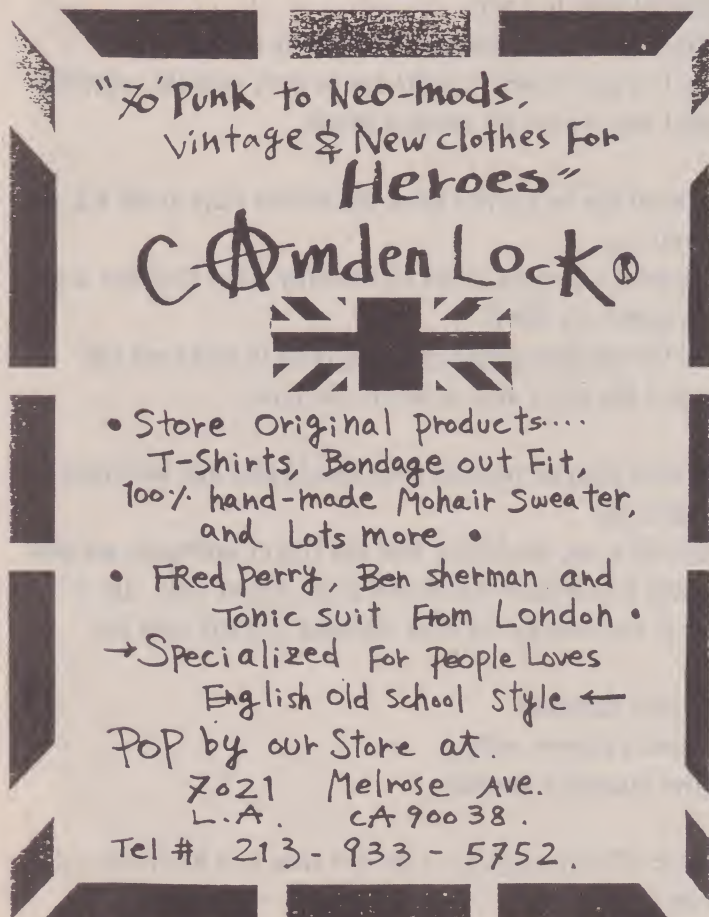 "70' Punk to Neo-mods,
vintage & New clothes For
Heroes"
CAmden Lock ®
• Store original products....
T-Shirts, Bondage out Fit,
100% hand-made Mohair Sweater,
and Lots more •
• FRed perry, Ben sherman and
Tonic suit From London •
→ Specialized For People Loves
English old school style ←
Pop by our Store at.
7021 Melrose Ave.
L.A. CA 90038.
Tel # 213-933-5752.